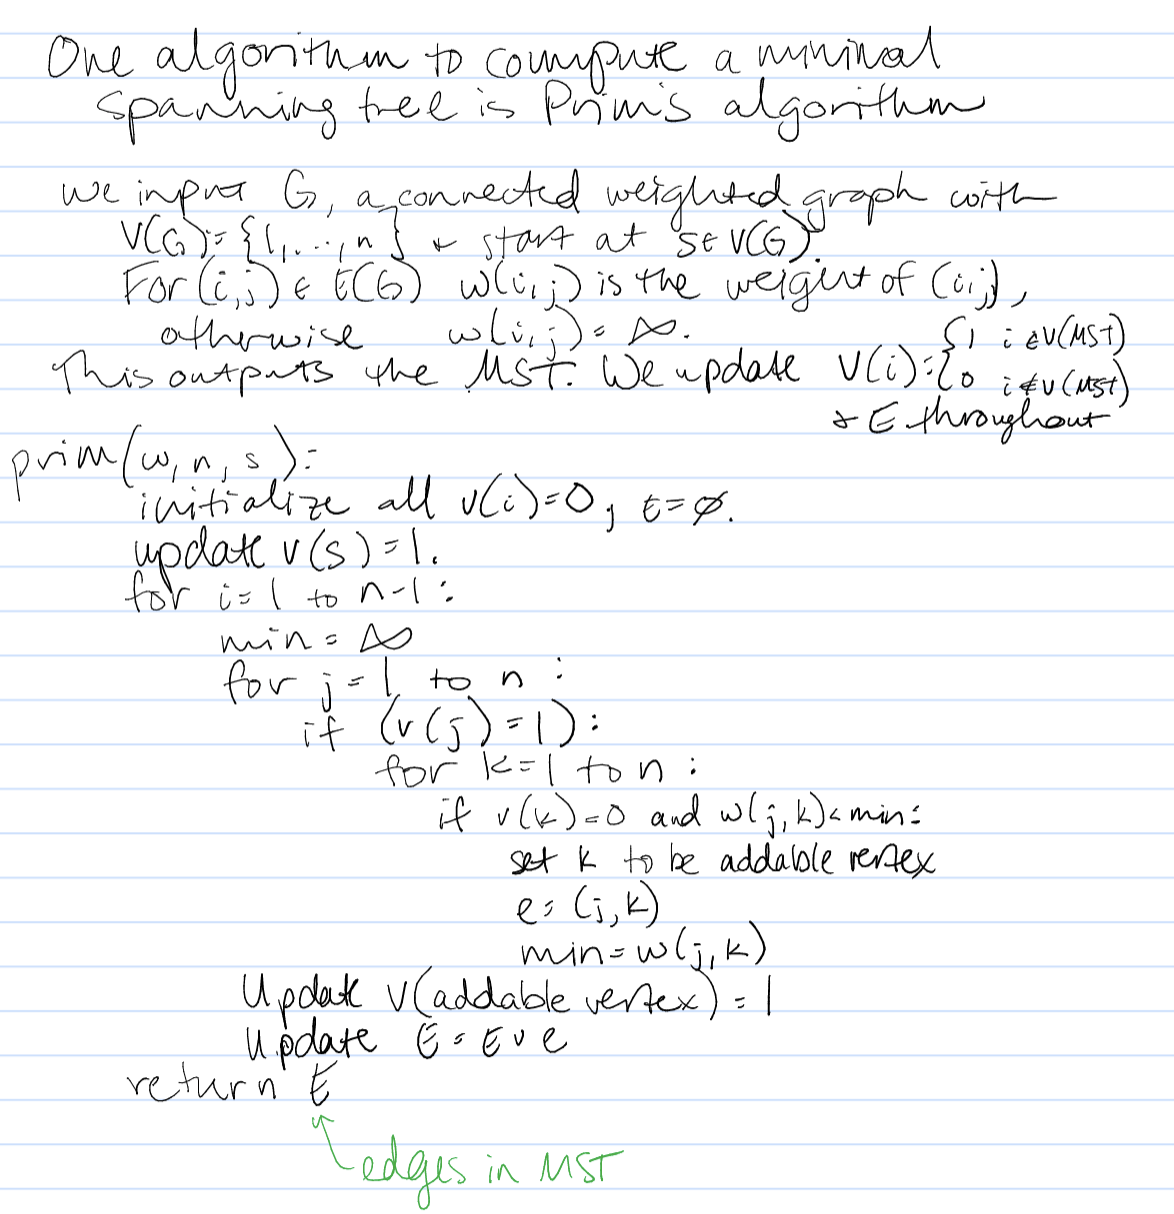 One algorithm to compute a minimal
spanning tree is Prim's algorithm
We input G, a connected weighted graph with
V(G)={1,...,n} & start at s∈V(G).
For (i,j) ∈ E(G) w(i,j) is the weight of (i,j),
otherwise w(i,j)=∞.
This outputs the MST. We update V(i)={1 i∈V(MST)
0 i∉V(MST)
& E throughout
prim(w,n,s):
initialize all v(i)=0, E=∅.
update v(s)=1.
for i=1 to n-1:
min=∞
for j=1 to n:
if (v(j)=1):
for k=1 to n:
if v(k)=0 and w(j,k)<min:
set k to be addable vertex
e=(j,k)
min=w(j,k)
Update v(addable vertex)=1
Update E=E∪e
return E
edges in MST